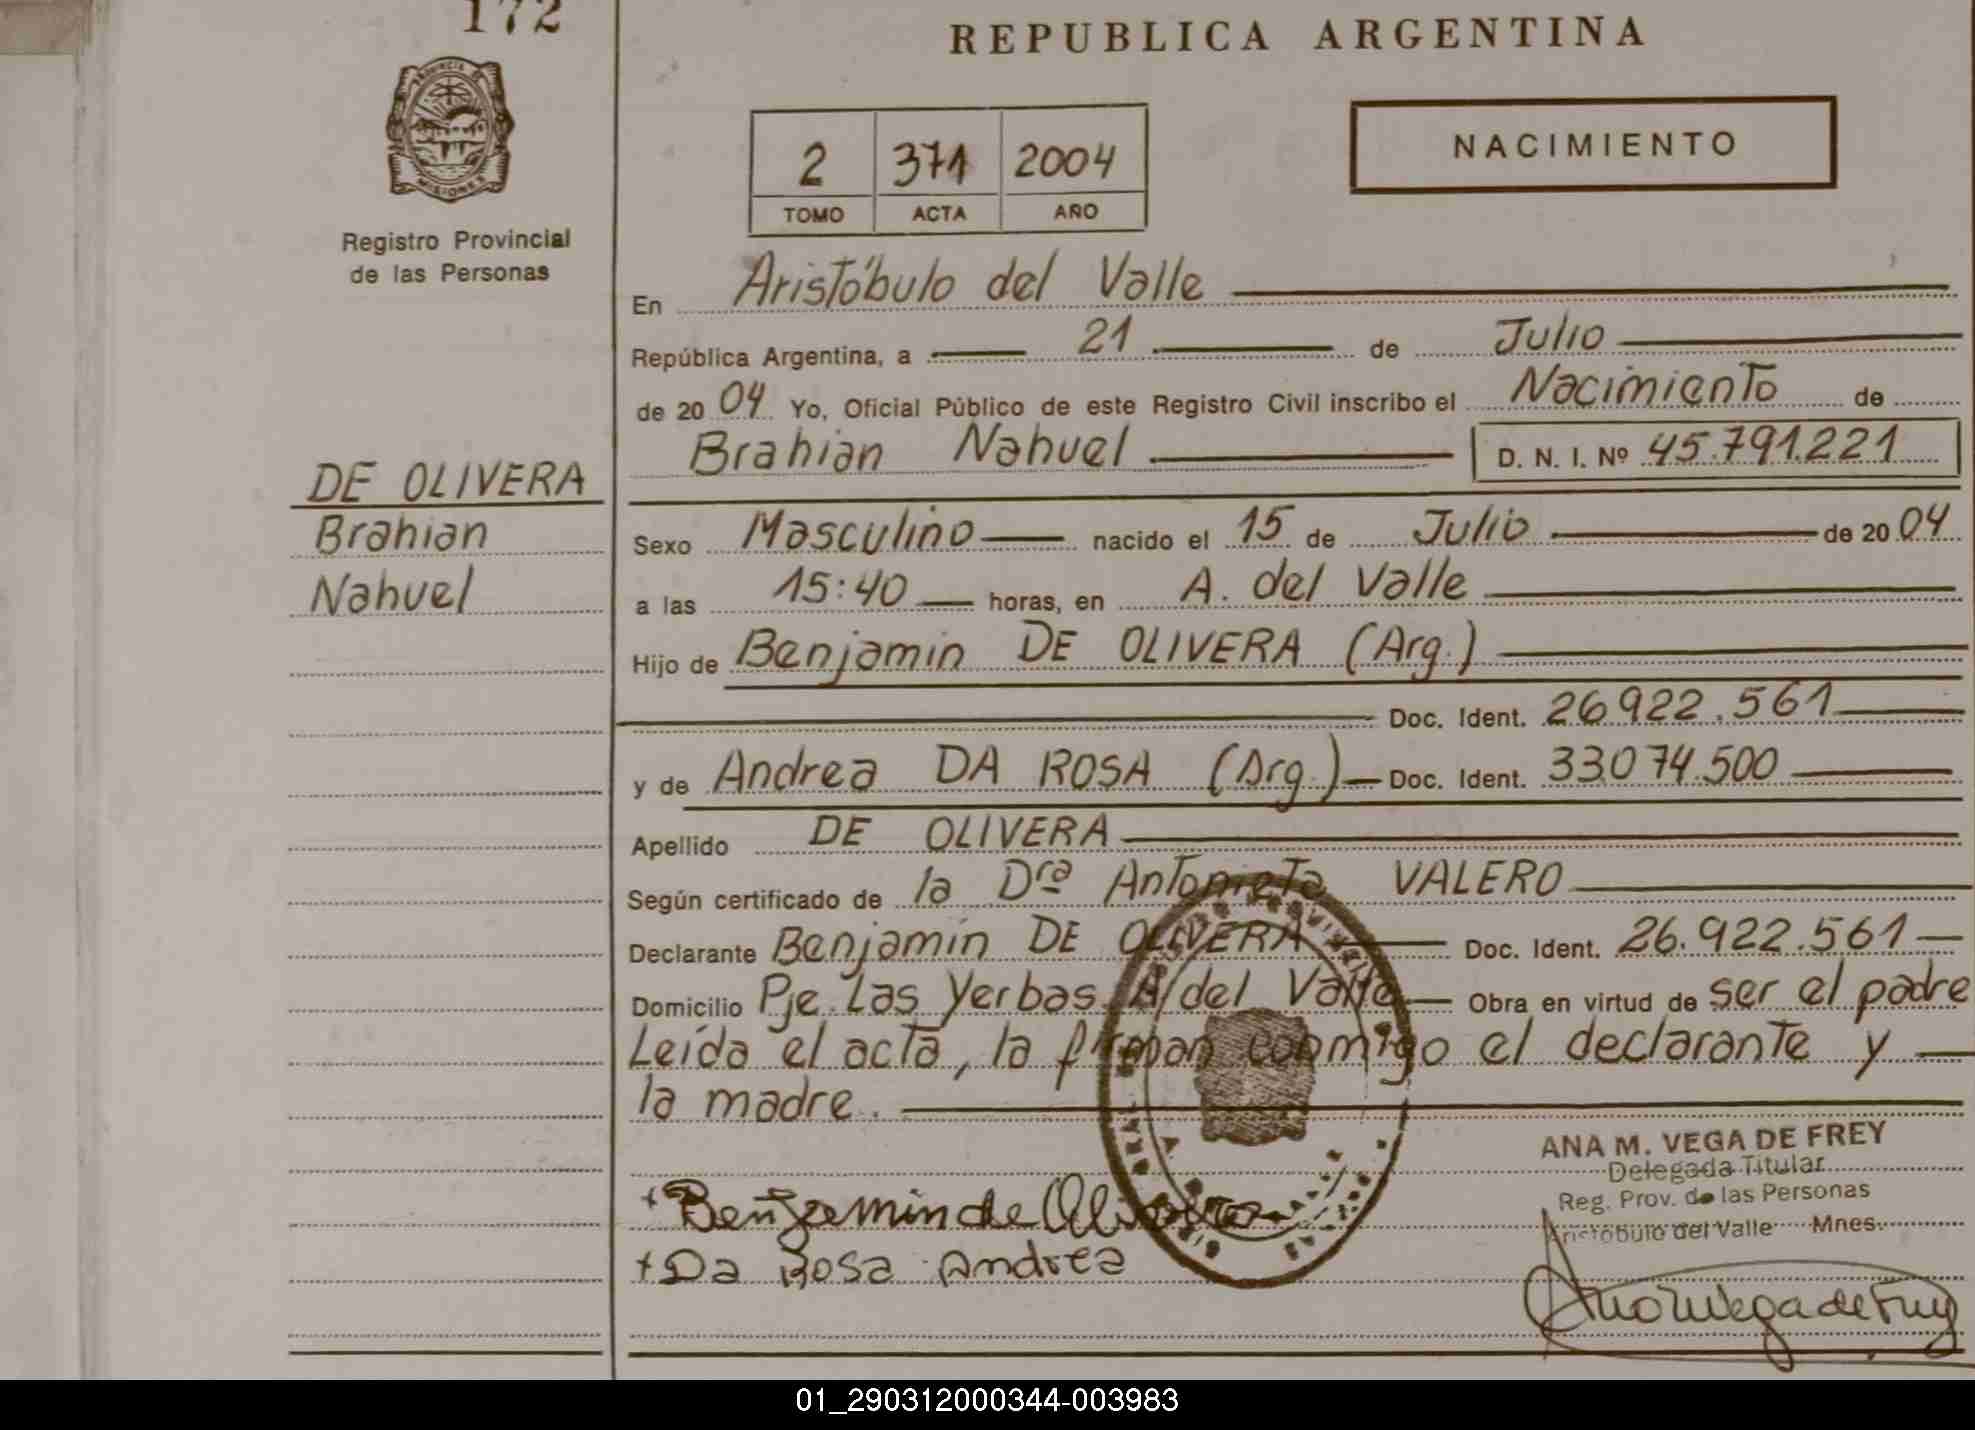 172
REPUBLICA ARGENTINA
PROVINCIA DE
MISIONES
Registro Provincial
de las Personas
NACIMIENTO
2 371 2004
TOMO ACTA AÑO
En Aristóbulo del Valle
República Argentina, a 21 de Julio
de 20 04 Yo, Oficial Público de este Registro Civil inscribo el Nacimiento de
Brahian Nahuel D. N. I. Nº 45.791.221
DE OLIVERA
Brahian
Nahuel
Sexo Masculino nacido el 15 de Julio de 20 04
a las 15:40 horas, en A. del Valle
Hijo de Benjamin DE OLIVERA (Arg.)
Doc. Ident. 26.922.561
y de Andrea DA ROSA (Arg.) Doc. Ident. 33.074.500
Apellido DE OLIVERA
Según certificado de la Drª Antonieta VALERO
Declarante Benjamín DE OLIVERA Doc. Ident. 26.922.561
Domicilio Pje. Las Yerbas A/del Valle Obra en virtud de ser el padre
Leída el acta, la firman conmigo el declarante y
la madre.
ANA M. VEGA DE FREY
Delegada Titular
Reg. Prov. de las Personas
Aristóbulo del Valle Mnes.
+ Benjamin de Olivera
+ Da Rosa Andrea
01_290312000344-003983